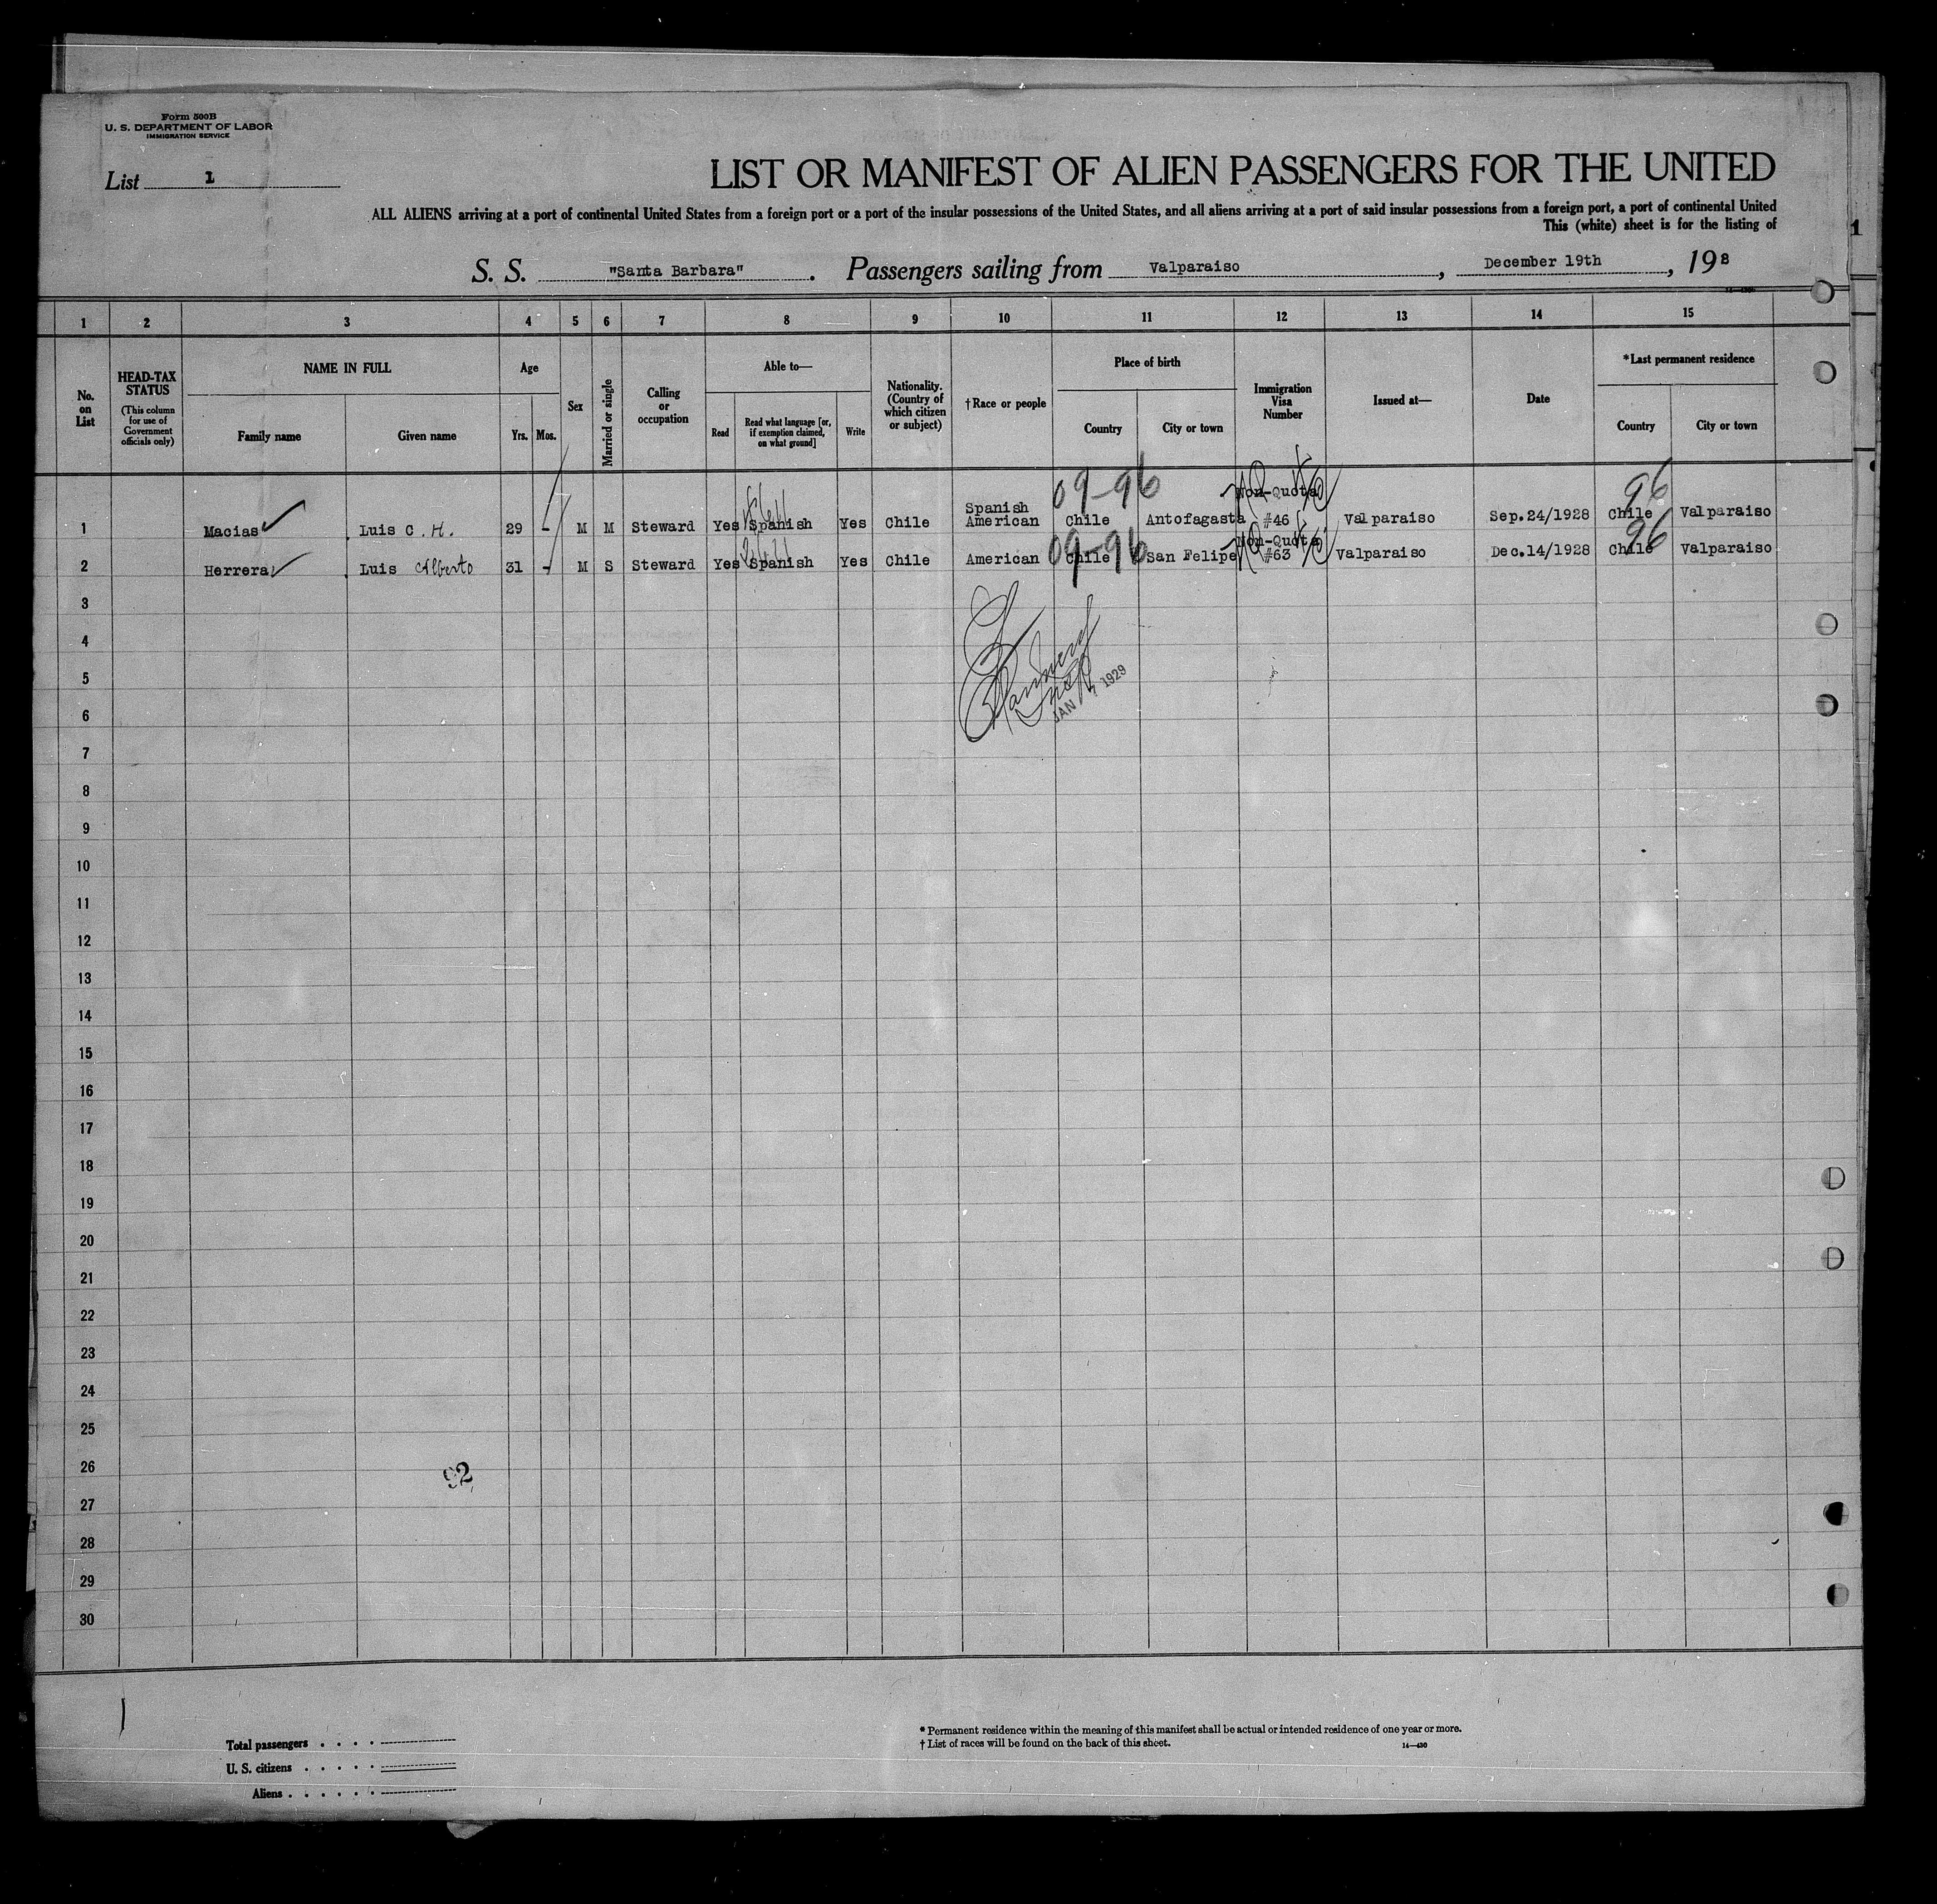 Form 500B
U. S. DEPARTMENT OF LABOR
IMMIGRATION SERVICE
List 1
LIST OR MANIFEST OF ALIEN PASSENGERS FOR THE UNITED
ALL ALIENS arriving at a port of continental United States from a foreign port or a port of the insular possessions of the United States, and all aliens arriving at a port of said insular possessions from a foreign port, a port of continental United
This (white) sheet is for the listing of
1
S. S. "Santa Barbara". Passengers sailing from Valparaiso, December 19th, 198
1 2 3 4 5 6 7 8 9 10 11 12 13 14 15
No. on List
HEAD-TAX STATUS
(This column for use of Government officials only)
NAME IN FULL
Family name
Given name
Age
Yrs.
Mos.
Sex
Married or single
Calling or occupation
Able to—
Read
Read what language [or, if exemption claimed, on what ground]
Write
Nationality. (Country of which citizen or subject)
†Race or people
Place of birth
Country
City or town
Immigration Visa Number
Issued at—
Date
*Last permanent residence
Country
City or town
09-96 96
1 Macias Luis C. H. 29 - M M Steward Yes Spanish Yes Chile Spanish American Chile Antofagasta Non-Quota #46 Valparaiso Sep.24/1928 Chile Valparaiso
09-96 96
2 Herrera Luis Alberto 31 - M S Steward Yes Spanish Yes Chile American Chile San Felipe Non-Quota #63 Valparaiso Dec.14/1928 Chile Valparaiso
3
4
5
JAN 7 1929
6
7
8
9
10
11
12
13
14
15
16
17
18
19
20
21
22
23
24
25
26
92
27
28
29
30
Total passengers . . . .
U. S. citizens . . . . .
Aliens . . . . . .
* Permanent residence within the meaning of this manifest shall be actual or intended residence of one year or more.
† List of races will be found on the back of this sheet.
14—430